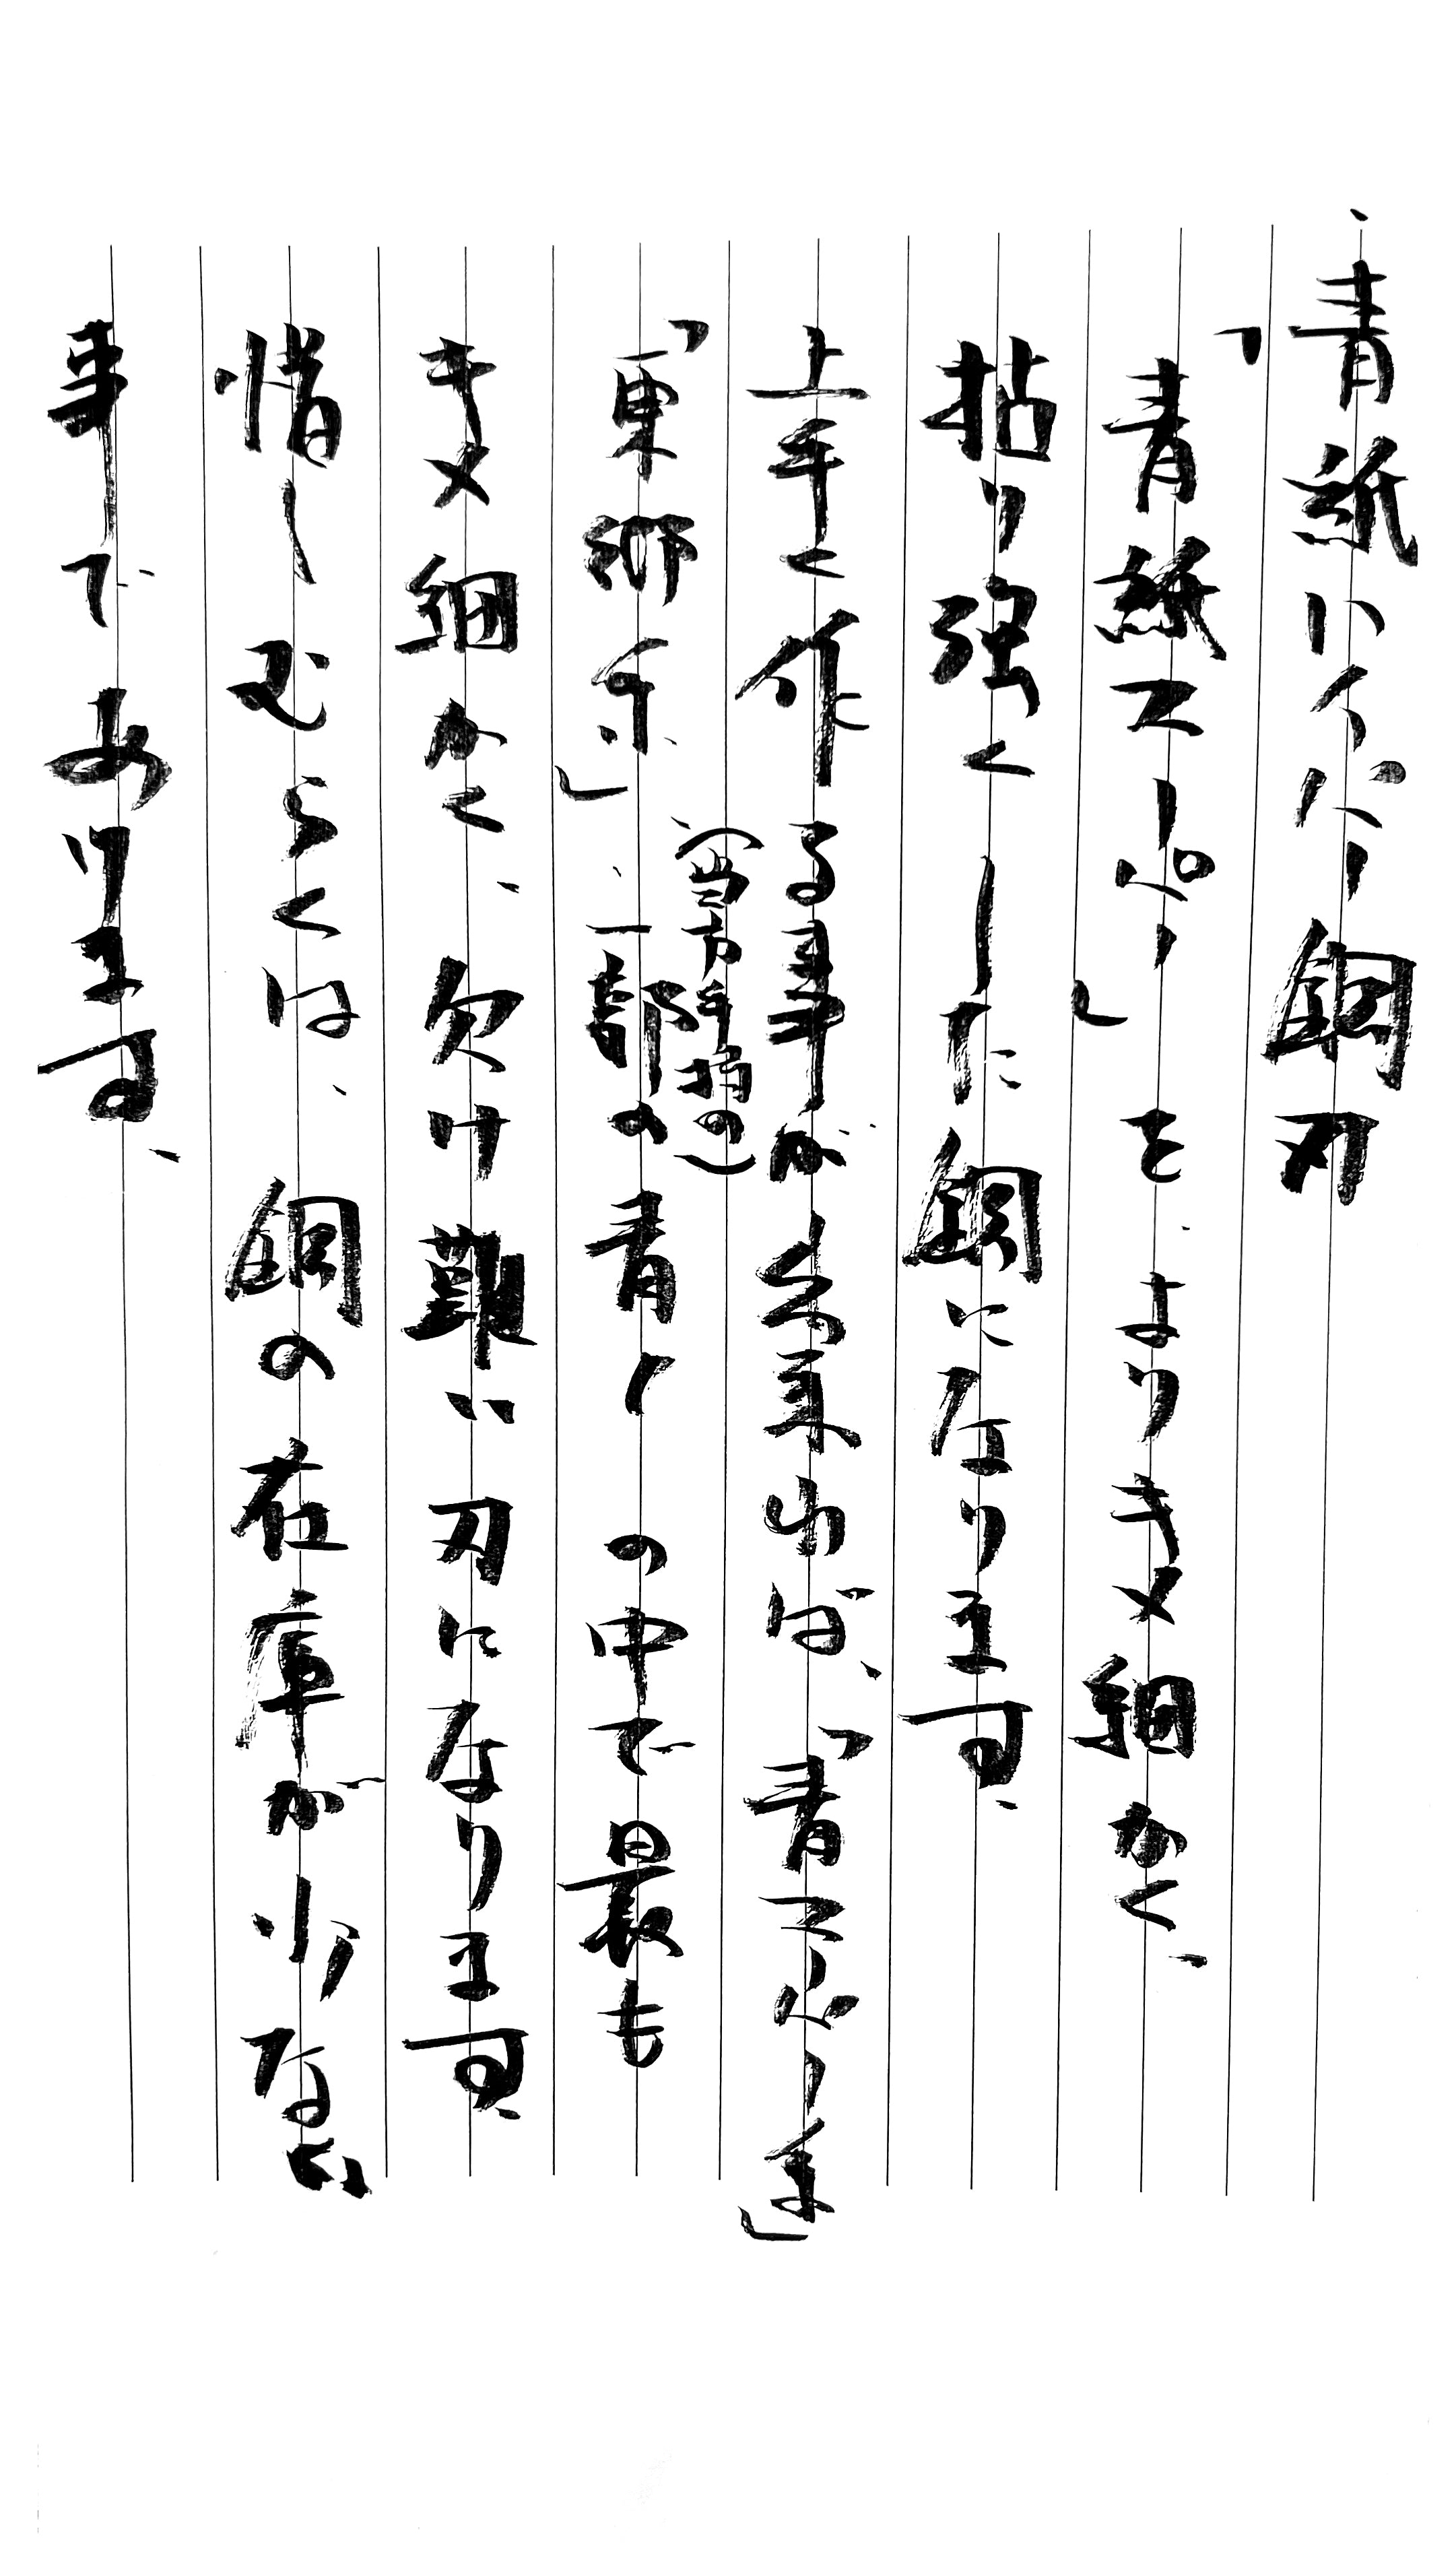 、青紙ハイパー鋼刃
「青紙スーパー」を、よりキメ細かく、
粘り強くした鋼になります。
上手く作る事が出来れば、「青スーパー」
「東郷系」、一部の青1の中で最も
（当方手持の）
キメ細かく、欠け難い刃になります。
惜しむらくは、鋼の在庫が少ない
事であります。